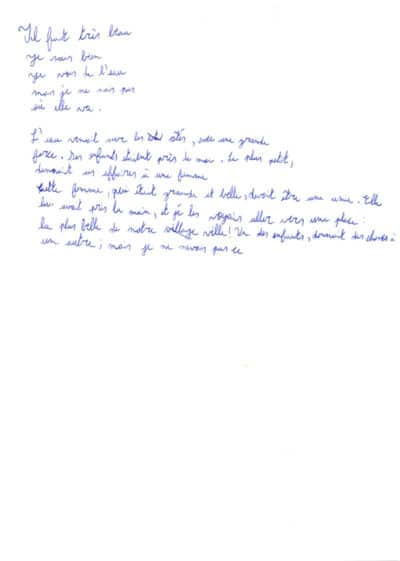 Il fait très beau
je vais bien
je vois de l'eau
mais je ne sais pas
où elle va.
L'eau venait sur les côtés, avec une grande
force. Des enfants étaient près de moi. Le plus petit,
donnait ses affaires à une femme
cette femme, qui était grande et belle, devait être une amie. Elle
lui avait pris la main, et je les voyais aller vers une place :
la plus belle de notre village ville! Un des enfants, donnait des choses à
un autre, mais je ne savais pas ce